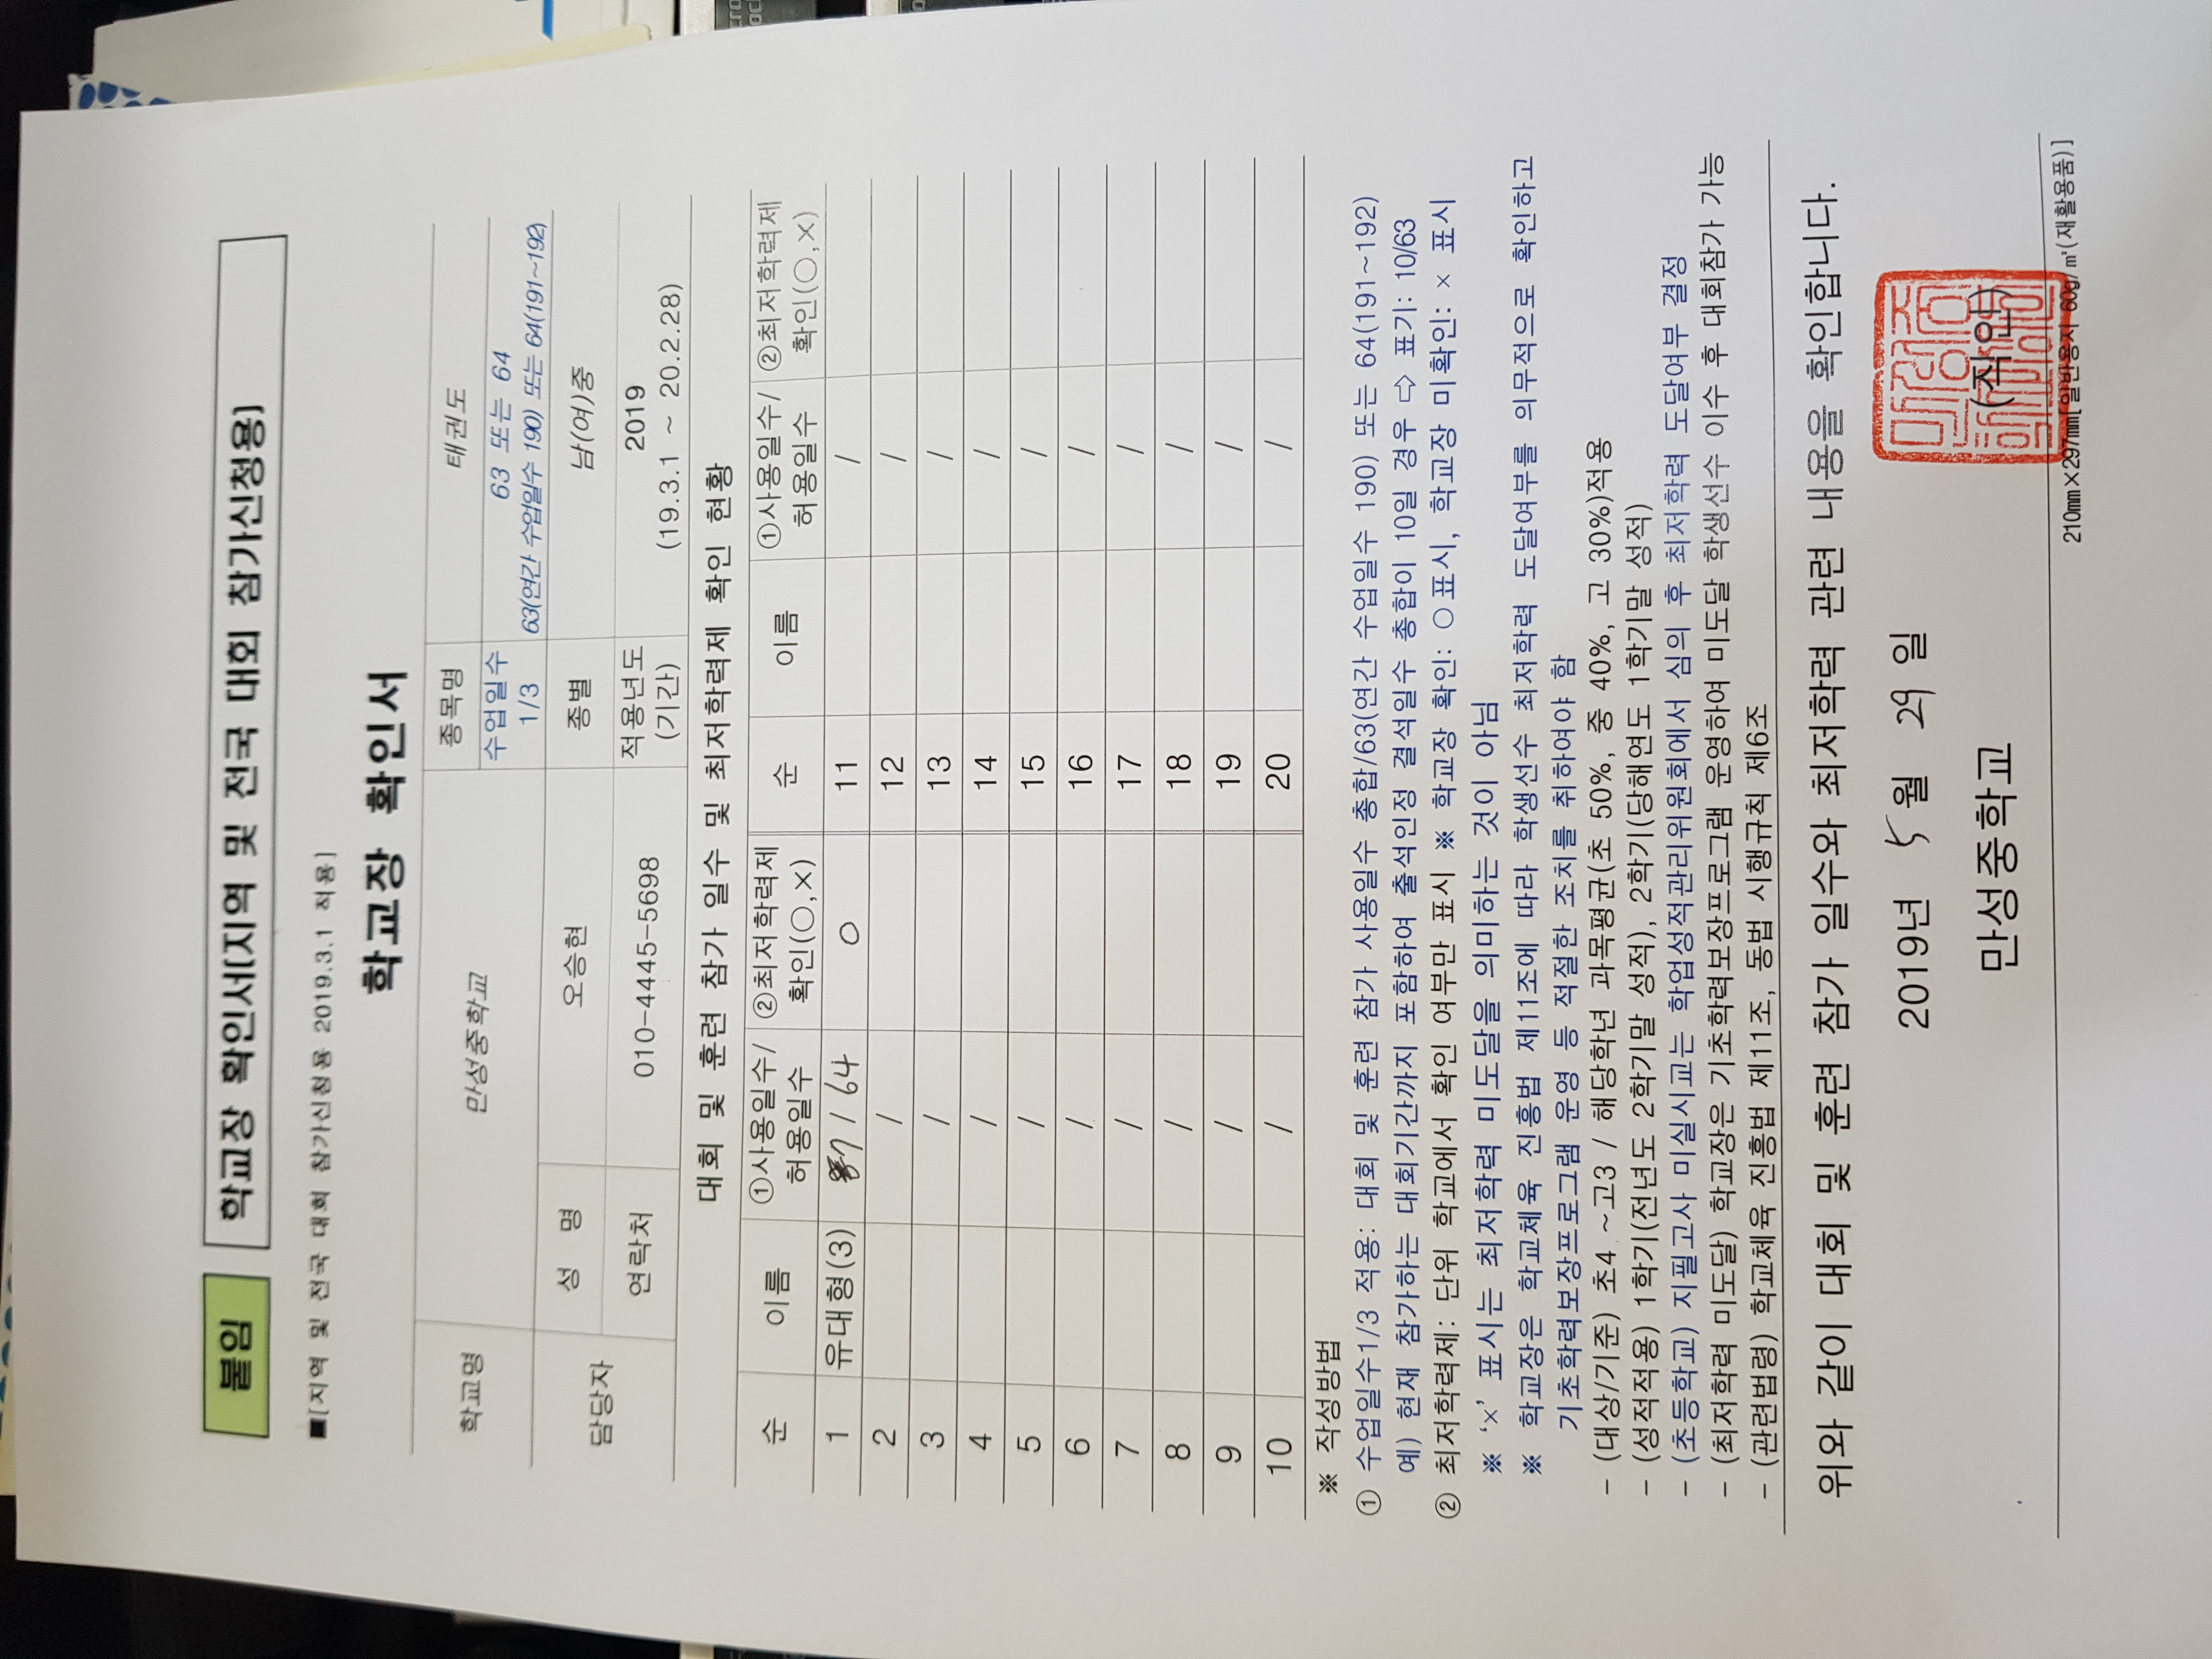 붙임 학교장 확인서(지역 및 전국 대회 참가신청용)
■[지역 및 전국 대회 참가신청용 2019.3.1 적용]
학교장 확인서
학교명 만성중학교 종목명 태권도
수업일수 1/3 63 또는 64
63(연간 수업일수 190) 또는 64(191~192)
담당자 성 명 오승현 종별 남(여)중
연락처 010-4445-5698 적용년도 (기간) 2019
(19.3.1 ~ 20.2.28)
대회 및 훈련 참가 일수 및 최저학력제 확인 현황
순 이름 ①사용일수/ 허용일수 ②최저학력제 확인(○,×) 순 이름 ①사용일수/ 허용일수 ②최저학력제 확인(○,×)
1 유대형(3) 7 / 64 ○ 11 /
2 / 12 /
3 / 13 /
4 / 14 /
5 / 15 /
6 / 16 /
7 / 17 /
8 / 18 /
9 / 19 /
10 / 20 /
※ 작성방법
① 수업일수1/3 적용: 대회 및 훈련 참가 사용일수 총합/63(연간 수업일수 190) 또는 64(191~192)
예) 현재 참가하는 대회기간까지 포함하여 출석인정 결석일수 총합이 10일 경우 ⇨ 표기: 10/63
② 최저학력제: 단위 학교에서 확인 여부만 표시 ※ 학교장 확인: ○표시, 학교장 미확인: × 표시
※ ‘×’ 표시는 최저학력 미도달을 의미하는 것이 아님
※ 학교장은 학교체육 진흥법 제11조에 따라 학생선수 최저학력 도달여부를 의무적으로 확인하고
기초학력보장프로그램 운영 등 적절한 조치를 취하여야 함
- (대상/기준) 초4 ~고3 / 해당학년 과목평균(초 50%, 중 40%, 고 30%)적용
- (성적적용) 1학기(전년도 2학기말 성적), 2학기(당해연도 1학기말 성적)
- (초등학교) 지필고사 미실시교는 학업성적관리위원회에서 심의 후 최저학력 도달여부 결정
- (최저학력 미도달) 학교장은 기초학력보장프로그램 운영하여 미도달 학생선수 이수 후 대회참가 가능
- (관련법령) 학교체육 진흥법 제11조, 동법 시행규칙 제6조
위와 같이 대회 및 훈련 참가 일수와 최저학력 관련 내용을 확인합니다.
2019년 5월 29일
만성중학교 (직인)
210㎜×297㎜[일반용지 60g/㎡(재활용품)]